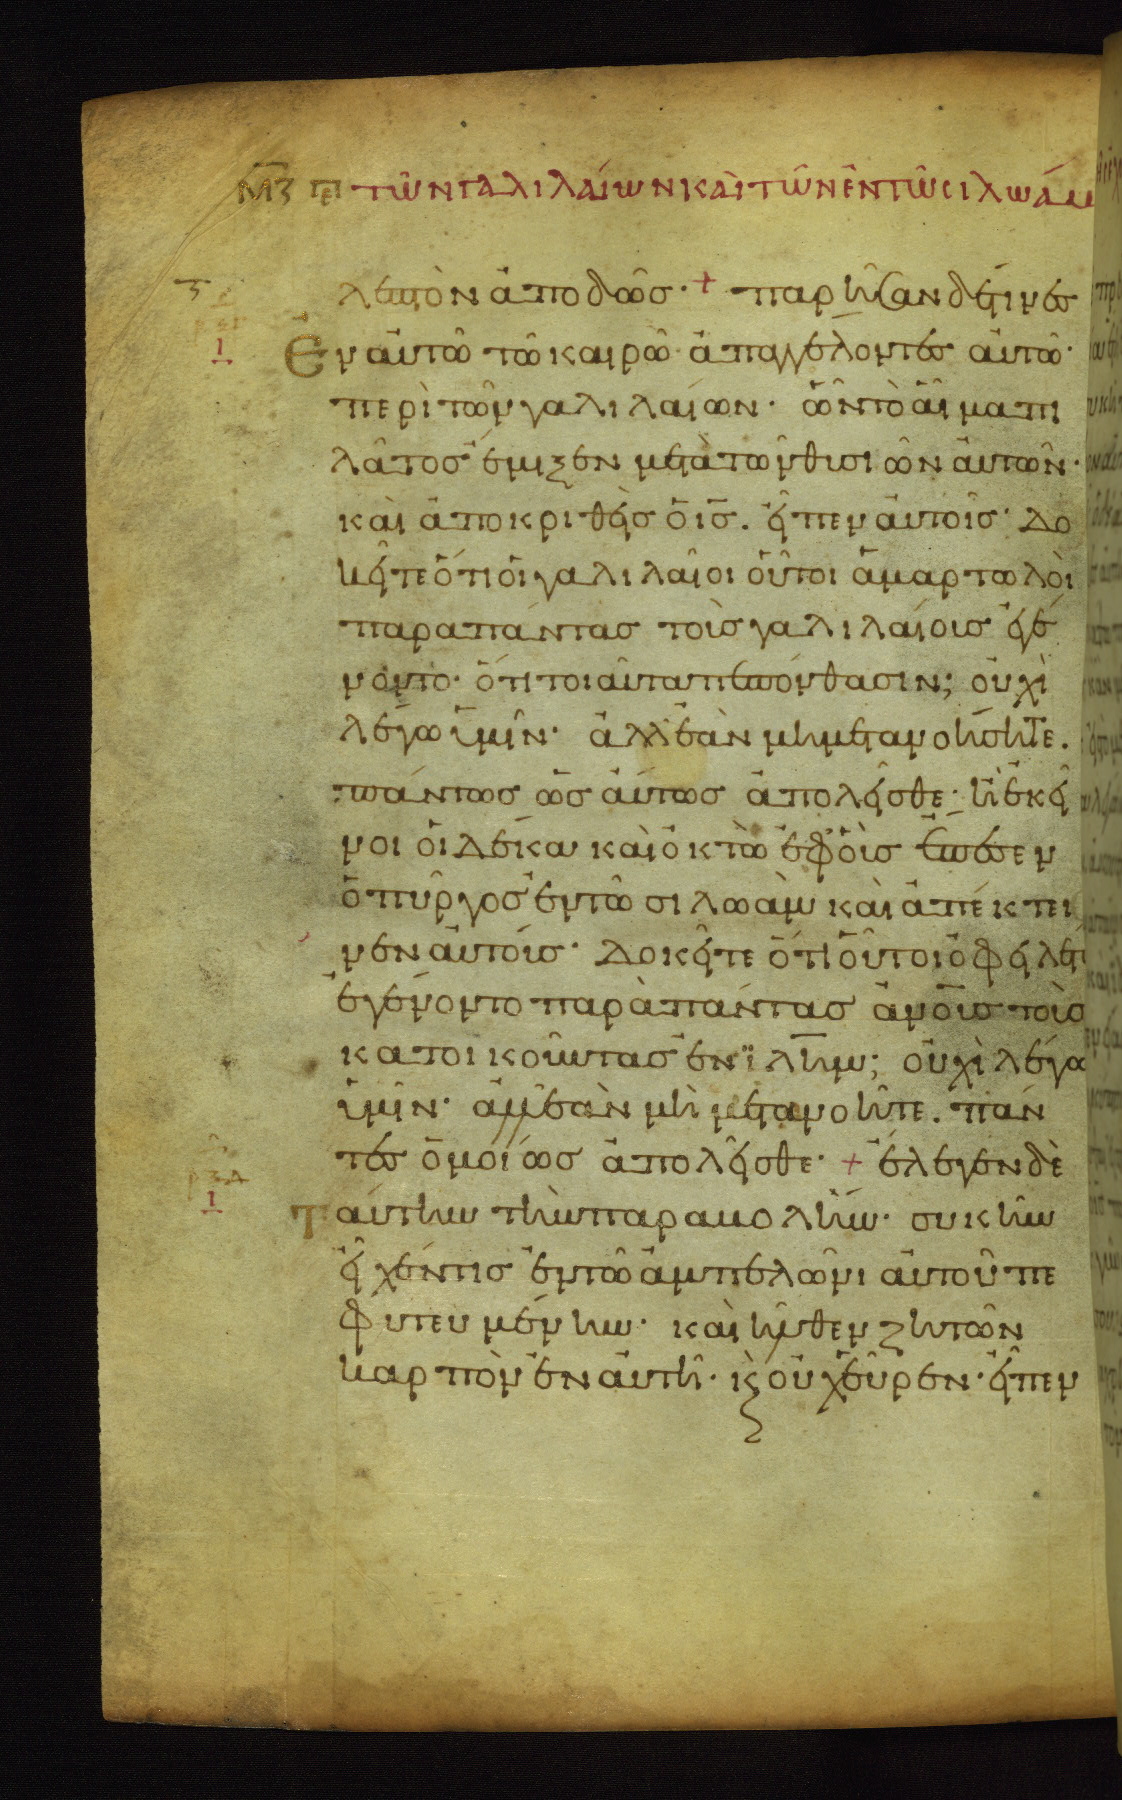 ΜΖ ΠΕ ΤῶΝ ΓΑΛΙΛΑίωΝ ΚΑὶ ΤῶΝ ἐΝ Τῶ CΙΛωάΜ
λεπτὸν ἀποδῶσ· + παρῆσαν δέ τινὲσ
Ἐν αὐτῶ τῶ καιρῶ ἀπαγγέλοντεσ αὐτῶ·
περὶ τῶν γαλιλαίων· ὧν τὸ αἷμα πι
λᾶτοσ ἔμιξεν μετὰ τῶν θυσιῶν αὐτῶν·
καὶ ἀποκριθεὶσ ὁ ισ. εἶπεν αὐτοῖσ· Δο
κεῖτε ὅτι οἱ γαλιλαῖοι οὗτοι ἁμαρτωλοὶ
παρα πάντασ τοὺσ γαλιλαίουσ ἐγέ
νοντο· ὅτι τοιαῦτα πεπόνθασιν; οὐχὶ
λέγω ὑμῖν· ἀλλ' ἐὰν μὴ μετανοήσητε.
πάντωσ ὡσαύτωσ ἀπολεῖσθε· ἢ ἐκεῖ
νοι οἱ Δέκα καὶ ὀκτὼ ἐφ' οὓσ ἔπεσεν
ὁ πύργοσ ἐν τῶ σιλωὰμ καὶ ἀπέκτει
νεν αὐτούσ· Δοκεῖτε ὅτι οὗτοι ὀφειλέτ
ἐγένοντο παρὰ πάντασ ἀνουσ τοὺσ
κατοικοῦντασ ἐν ϊλημ; οὐχὶ λέγω
ὑμῖν· ἀλλ' ἐὰν μὴ μετανοῆτε. πάν
τεσ ὁμοίωσ ἀπολεῖσθε· + ἔλεγεν δὲ
Ταύτην τὴν παραβολήν· συκῆν
εἶχέν τισ ἐν τῶ ἀμπελῶνι αὐτοῦ πε
φυτευμένην· καὶ ἦλθεν ζητῶν
καρπὸν ἐν αὐτῆ· κ οὐχ εὗρεν· εἶπεν